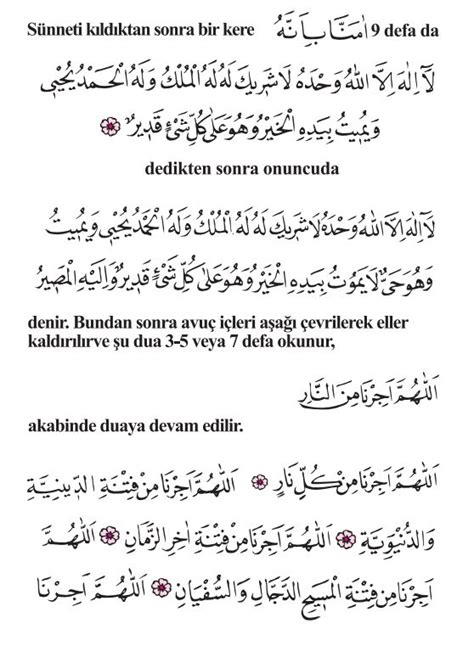 Sünneti kıldıktan sonra bir kere اٰمَنَّا بِاَنَّهُ 9 defa da
لَآ اِلٰهَ اِلَّا اللّٰهُ وَحْدَهُ لَا شَرِيكَ لَهُ لَهُ الْمُلْكُ وَلَهُ الْحَمْدُ يُحْيِى
وَيُمِيتُ بِيَدِهِ الْخَيْرُ وَهُوَ عَلٰى كُلِّ شَىْءٍ قَدِيرٌ
dedikten sonra onuncuda
لَآ اِلٰهَ اِلَّا اللّٰهُ وَحْدَهُ لَا شَرِيكَ لَهُ لَهُ الْمُلْكُ وَلَهُ الْحَمْدُ يُحْيِى وَيُمِيتُ
وَهُوَ حَىٌّ لَا يَمُوتُ بِيَدِهِ الْخَيْرُ وَهُوَ عَلٰى كُلِّ شَىْءٍ قَدِيرٌ وَاِلَيْهِ الْمَصِيرُ
denir. Bundan sonra avuç içleri aşağı çevrilerek eller
kaldırılırve şu dua 3-5 veya 7 defa okunur,
اَللّٰهُمَّ اَجِرْنَا مِنَ النَّارِ
akabinde duaya devam edilir.
اَللّٰهُمَّ اَجِرْنَا مِنْ كُلِّ نَارٍ اَللّٰهُمَّ اَجِرْنَا مِنْ فِتْنَةِ الدِّينِيَّةِ
وَالدُّنْيَوِيَّةِ اَللّٰهُمَّ اَجِرْنَا مِنْ فِتْنَةِ اٰخِرِ الزَّمَانِ اَللّٰهُمَّ
اَجِرْنَا مِنْ فِتْنَةِ الْمَسِيحِ الدَّجَّالِ وَالسُّفْيَانِ اَللّٰهُمَّ اَجِرْنَا